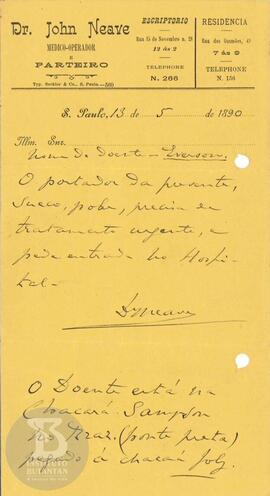 Dr. John Neave
MEDICO-OPERADOR
E
PARTEIRO
Typ. Seckler & C. S. Paulo.—569
ESCRIPTORIO
Rua 15 de Novembro n. 29
12 ás 2
TELEPHONE
N. 266
RESIDENCIA
Rua dos Gusmões, 49
7 ás 9
TELEPHONE
N. 156
S. Paulo, 13 de 5 de 1890
Illm. Snr.
Nome do doente - Everson.
O portador da presente,
Sueco, pobre, precisa de
tratamento urgente, e
pede entrada no Hospi-
tal -
DNeave
O Doente está na
Chacara Sampson
no Braz. (ponte preta)
pegado á chacara
INSTITUTO
BUTANTAN
A SERVIÇO DA VIDA